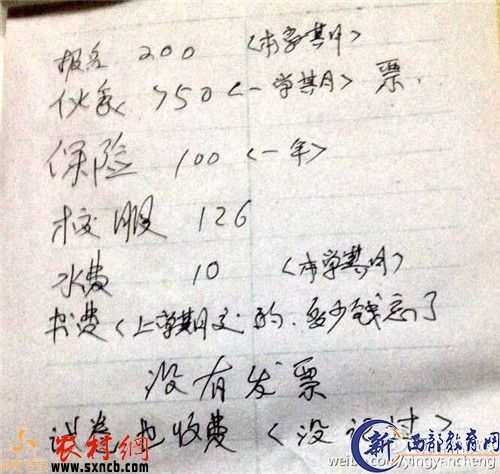 报名 200 <本学期>
伙食 750 <一学期> 票.
保险 100 <一年>
校服 126
水费 10 <本学期>
书费<上学期交的.多少钱忘了
没有发票
试卷也收费 <没 过>
农村網
www.sxncb.com
新 西部教育网
yingyancheng